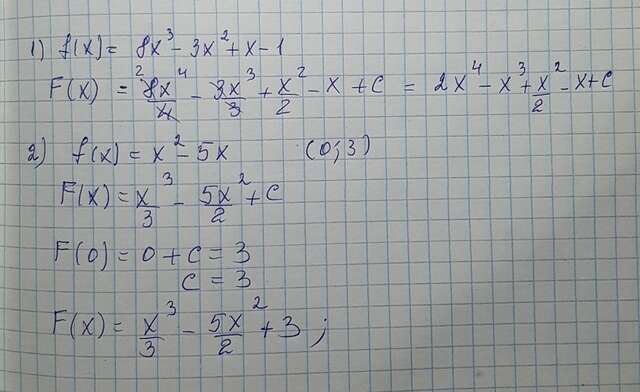 1) f(x) = 8x³ - 3x² + x - 1
F(x) = ²8x⁴/4 - 3x³/3 + x²/2 - x + C = 2x⁴ - x³ + x²/2 - x + C
2) f(x) = x² - 5x (0; 3)
F(x) = x³/3 - 5x²/2 + C
F(0) = 0 + C = 3
C = 3
F(x) = x³/3 - 5x²/2 + 3 ;